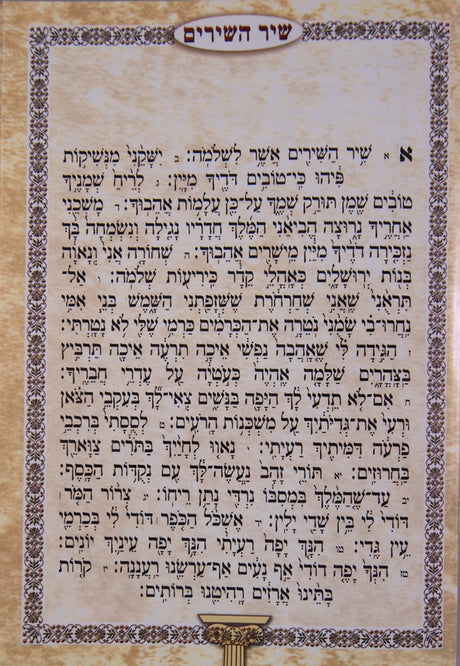 שיר השירים
א א שִׁ֥יר הַשִּׁירִ֖ים אֲשֶׁ֥ר לִשְׁלֹמֹֽה׃ ב יִשָּׁקֵ֙נִי֙ מִנְּשִׁיק֣וֹת
פִּ֔יהוּ כִּֽי־טוֹבִ֥ים דֹּדֶ֖יךָ מִיָּֽיִן׃ ג לְרֵ֙יחַ֙ שְׁמָנֶ֣יךָ
טוֹבִ֔ים שֶׁ֖מֶן תּוּרַ֣ק שְׁמֶ֑ךָ עַל־כֵּ֖ן עֲלָמ֥וֹת אֲהֵבֽוּךָ׃ ד מָשְׁכֵ֖נִי
אַחֲרֶ֣יךָ נָּר֑וּצָה הֱבִיאַ֨נִי הַמֶּ֜לֶךְ חֲדָרָ֗יו נָגִ֤ילָה וְנִשְׂמְחָה֙ בָּ֔ךְ
נַזְכִּ֤ירָה דֹדֶ֙יךָ֙ מִיַּ֔יִן מֵישָׁרִ֖ים אֲהֵבֽוּךָ׃ ה שְׁחוֹרָ֤ה אֲנִי֙ וְֽנָאוָ֔ה
בְּנ֖וֹת יְרוּשָׁלָ֑͏ִם כְּאׇהֳלֵ֣י קֵדָ֔ר כִּירִיע֖וֹת שְׁלֹמֹֽה׃ ו אַל־
תִּרְא֙וּנִי֙ שֶׁאֲנִ֣י שְׁחַרְחֹ֔רֶת שֶׁשְּׁזָפַ֖תְנִי הַשָּׁ֑מֶשׁ בְּנֵ֧י אִמִּ֣י
נִֽחֲרוּ־בִ֗י שָׂמֻ֙נִי֙ נֹטֵרָ֣ה אֶת־הַכְּרָמִ֔ים כַּרְמִ֥י שֶׁלִּ֖י לֹ֥א נָטָֽרְתִּי׃
ז הַגִּ֣ידָה לִּ֗י שֶׁ֤אָהֲבָה֙ נַפְשִׁ֔י אֵיכָ֣ה תִרְעֶ֔ה אֵיכָ֖ה תַּרְבִּ֣יץ
בַּֽצׇּהֳרָ֑יִם שַׁלָּמָ֤ה אֶֽהְיֶה֙ כְּעֹ֣טְיָ֔ה עַ֖ל עֶדְרֵ֥י חֲבֵרֶֽיךָ׃
ח אִם־לֹ֤א תֵדְעִי֙ לָ֔ךְ הַיָּפָ֖ה בַּנָּשִׁ֑ים צְֽאִי־לָ֞ךְ בְּעִקְבֵ֣י הַצֹּ֗אן
וּרְעִי֙ אֶת־גְּדִיֹּתַ֔יִךְ עַ֖ל מִשְׁכְּנ֥וֹת הָרֹעִֽים׃ ט לְסֻסָתִי֙ בְּרִכְבֵ֣י
פַרְעֹ֔ה דִּמִּיתִ֖יךְ רַעְיָתִֽי׃ י נָאו֤וּ לְחָיַ֙יִךְ֙ בַּתֹּרִ֔ים צַוָּארֵ֖ךְ
בַּחֲרוּזִֽים׃ יא תּוֹרֵ֤י זָהָב֙ נַעֲשֶׂה־לָּ֔ךְ עִ֖ם נְקֻדּ֥וֹת הַכָּֽסֶף׃
יב עַד־שֶׁ֤הַמֶּ֙לֶךְ֙ בִּמְסִבּ֔וֹ נִרְדִּ֖י נָתַ֥ן רֵיחֽוֹ׃ יג צְר֨וֹר הַמֹּ֤ר ׀
דּוֹדִי֙ לִ֔י בֵּ֥ין שָׁדַ֖י יָלִֽין׃ יד אֶשְׁכֹּ֨ל הַכֹּ֤פֶר ׀ דּוֹדִי֙ לִ֔י בְּכַרְמֵ֖י
עֵ֥ין גֶּֽדִי׃ טו הִנָּ֤ךְ יָפָה֙ רַעְיָתִ֔י הִנָּ֥ךְ יָפָ֖ה עֵינַ֥יִךְ יוֹנִֽים׃
טז הִנְּךָ֨ יָפֶ֤ה דוֹדִי֙ אַ֣ף נָעִ֔ים אַף־עַרְשֵׂ֖נוּ רַעֲנָנָֽה׃ יז קֹר֤וֹת
בָּתֵּ֙ינוּ֙ אֲרָזִ֔ים רַהִיטֵ֖נוּ בְּרוֹתִֽים׃